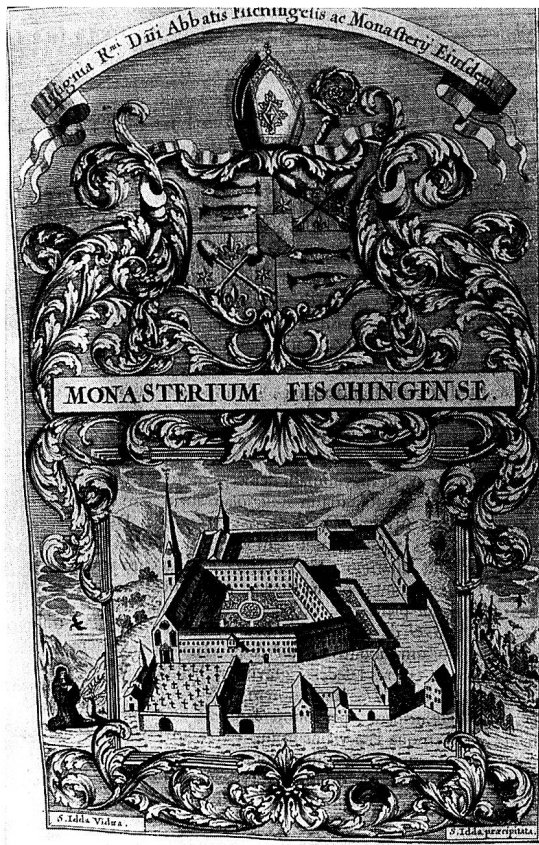 Insignia R.mi Dñi Abbatis Fischingẽsis ac Monasterÿ Eiusdem
MONASTERIUM FISCHINGENSE.
S. Idda Vidua.
S. Idda præcipitata.